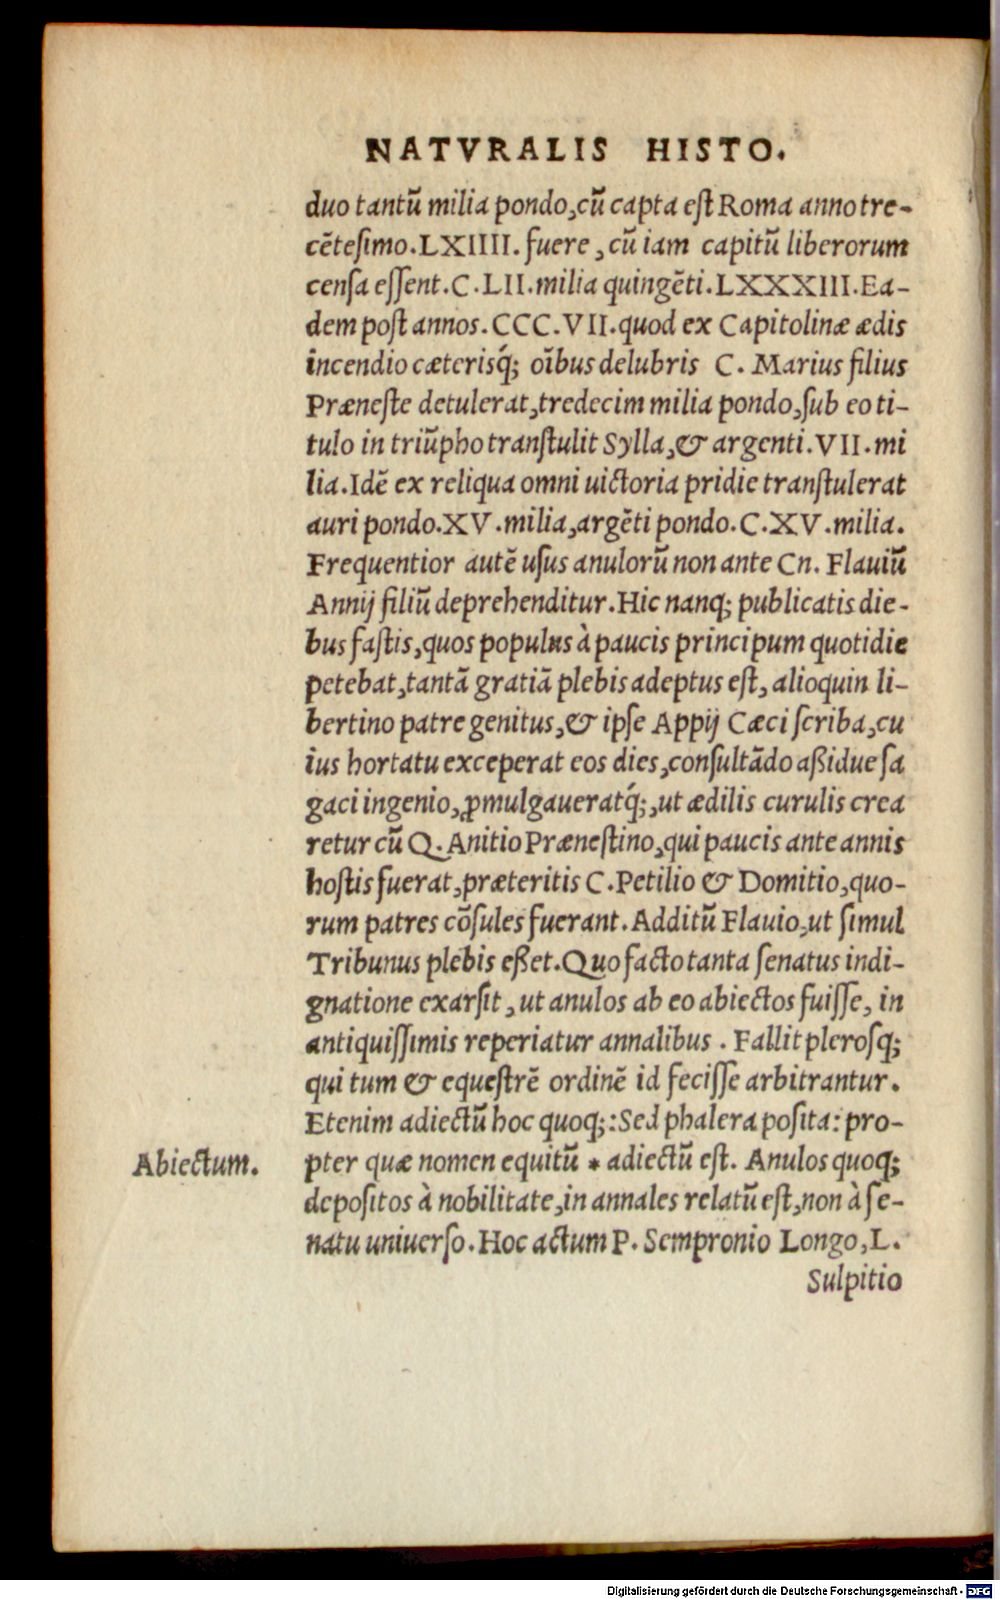 NATVRALIS HISTO.
duo tantũ milia pondo, cũ capta eſt Roma anno tre-
cẽteſimo. LXIIII. fuere, cũ iam capitũ liberorum
cenſa eſſent. C. LII. milia quingẽti. LXXXIII. Ea-
dem poſt annos. CCC. VII. quod ex Capitolinæ ædis
incendio cæteriſq́; oĩbus delubris C. Marius filius
Præneſte detulerat, tredecim milia pondo, ſub eo ti-
tulo in triũpho tranſtulit Sylla, & argenti. VII. mi
lia. Idẽ ex reliqua omni uictoria pridie tranſtulerat
auri pondo. XV. milia, argẽti pondo. C. XV. milia.
Frequentior autẽ uſus anulorũ non ante Cn. Flauiũ
Annij filiũ deprehenditur. Hic nanq; publicatis die-
bus faſtis, quos populus à paucis principum quotidie
petebat, tantã gratiã plebis adeptus eſt, alioquin li-
bertino patre genitus, & ipſe Appij Cæci ſcriba, cu
ius hortatu exceperat eos dies, conſultãdo aßidue ſa
gaci ingenio, ꝓmulgaueratq́;, ut ædilis curulis crea
retur cũ Q. Anitio Præneſtino, qui paucis ante annis
hoſtis fuerat, præteritis C. Petilio & Domitio, quo-
rum patres cõſules fuerant. Additũ Flauio, ut ſimul
Tribunus plebis eßet. Quo facto tanta ſenatus indi-
gnatione exarſit, ut anulos ab eo abiectos fuiſſe, in
antiquiſſimis reperiatur annalibus. Fallit pleroſq;
qui tum & equeſtrẽ ordinẽ id feciſſe arbitrantur.
Etenim adiectũ hoc quoq;: Sed phalera poſita: pro-
pter quæ nomen equitũ * adiectũ eſt. Anulos quoq;
Abiectum.
depoſitos à nobilitate, in annales relatũ eſt, non à ſe-
natu uniuerſo. Hoc actum P. Sempronio Longo, L.
Sulpitio
Digitalisierung gefördert durch die Deutsche Forschungsgemeinschaft - DFG